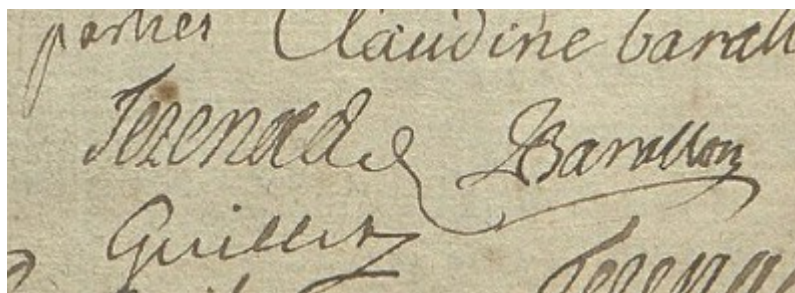 parties Claudine barall
Terenad JBarallon
Guillet
Terena